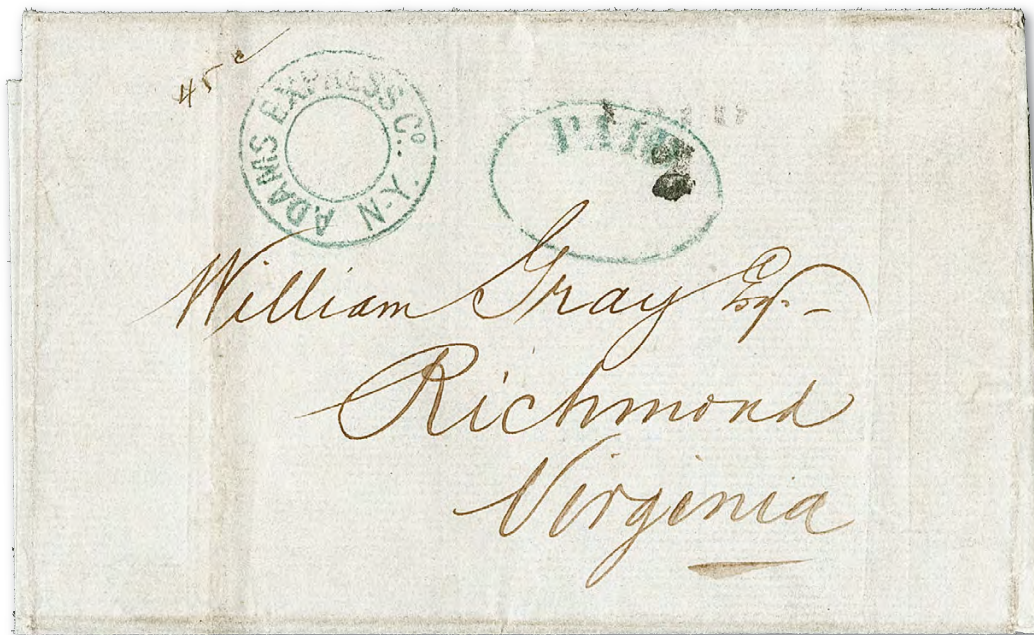 45c
ADAMS EXPRESS Co. N-Y.
PAID
William Gray Esq.
Richmond
Virginia